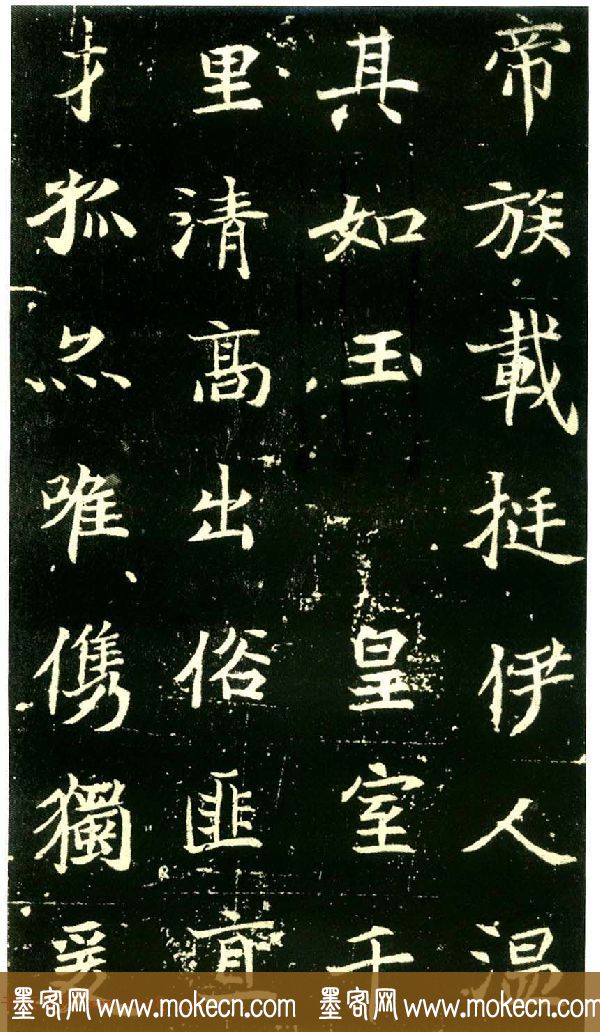 帝族載挺伊人温
其如玉皇室千
里清高出俗匪直
才孤㷀唯儁獨爰
墨客网www.mokecn.com 墨客网www.mokecn.com